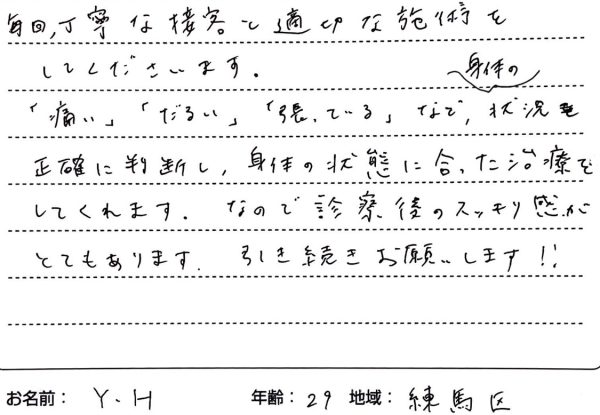 毎回、丁寧な接客と適切な施術を
してくださいます。
身体の
「痛い」「だるい」「張っている」など、状況を
正確に判断し、身体の状態に合った治療を
してくれます。なので診療後のスッキリ感が
とてもあります。引き続きお願いします!!
お名前: Y.H 年齢: 29 地域: 練馬区